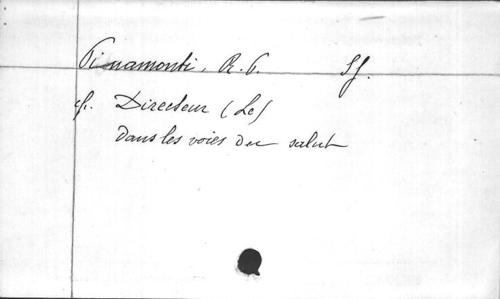 Pinamonti, R. P. SJ.
cf. Directeur (Le)
dans les voies du salut